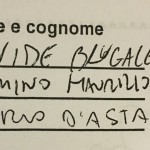 e e cognome
VIDE BLUGALE
MINO MAURIZIO
RIO D'ASTA